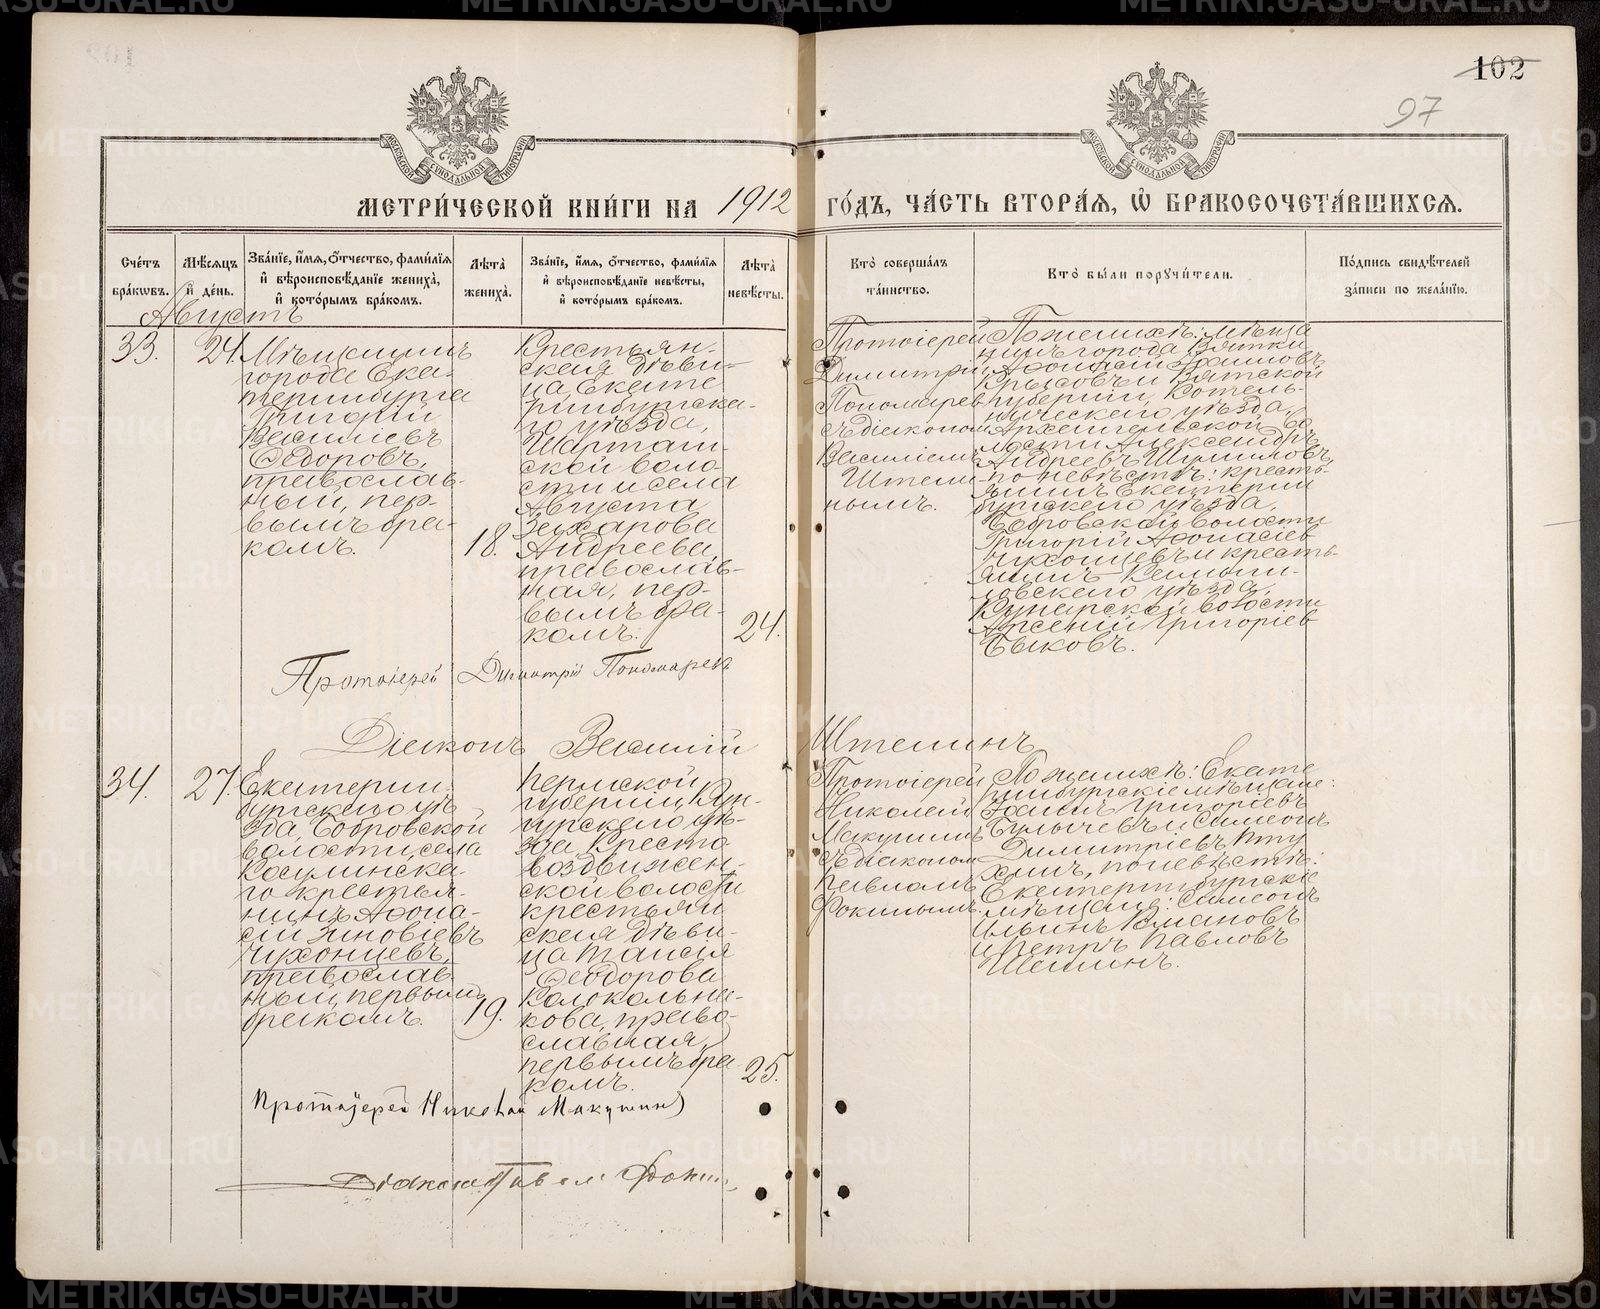 102
97
МЕТРИ́ЧЕСКОЙ КНИ́ГИ НА 1912 ГО́ДЪ, ЧА́СТЬ ВТОРА́Я, Ѡ БРАКОСОЧЕТА́ВШИХСЯ.
Сче́тъ бра́кѡвъ.
Мѣ́сяцъ и де́нь.
Зва́ніе, и́мя, о́тчество, фами́лія и вѣроисповѣ́даніе жениха̀, и кото́рымъ бра́комъ.
Лѣ́та̀ жениха̀.
Зва́ніе, и́мя, о́тчество, фами́лія и вѣроисповѣ́даніе невѣ́сты, и кото́рымъ бра́комъ.
Лѣ́та̀ невѣ́сты.
Кто̀ соверша́лъ та́инство.
Кто̀ бы́ли порꙋчи́тели.
По́дпись свидѣ́телей за́писи по жела́нію.
Августъ
33.
24.
Мѣщанинъ
города Ека-
теринбурга
Григорій
Василіевъ
Ѳедоровъ,
православ-
ный, пер-
вымъ бра-
комъ.
18.
Крестьян-
ская дѣви-
ца Екате
ринбургска-
го уѣзда,
Шарташ-
ской воло-
сти и села
Августа
Захарова
Андреева,
православ-
ная, пер-
вымъ бра-
комъ.
24.
Протоіерей
Димитрій
Пономарев
съ діакономъ
Василіемъ
Штели
нымъ.
По женихѣ: мѣща
нинъ города Вятки
Крысовъ и Вятской
губерніи, Котель-
ническаго уѣзда,
Архангельской во
лости Александръ
Андреевъ Шулиловъ,
по невѣстѣ: кресть-
янинъ Екатерин
бургскаго уѣзда,
Бобровской волости
Григорій Аѳонасіев
Чухонцевъ и кресть-
янинъ Камыш-
ловскаго уѣзда,
Кунарской волости
Арсеній Григоріев
Быковъ.
Протоіерей Димитрій Пономарев
Діаконъ Василій Штелинъ
34.
27.
Екатерин
бургскаго уѣ
зда, Бобровской
волости, села
Косулинска-
го крестья-
нинъ Аѳона-
сій Зиновіевъ
Чухонцевъ,
православ-
ный, первымъ
бракомъ.
19.
Пермской
губерніи, Кун-
гурскаго уѣ-
зда, Кресто
воздвижен-
ской волости
крестьян
ская дѣви-
ца Таисія
Ѳеодорова
Колокольни-
кова, право-
славная,
первымъ бра
комъ.
25.
Протоіерей
Николай
Макушинъ
съ діакономъ
Павломъ
Фокинымъ.
По женихѣ: Екате
ринбургскіе мѣщане:
Іоаннъ Григоріевъ
Булычевъ и Симеонъ
Димитріевъ Пту
хинъ, по невѣстѣ:
Екатеринбургскіе
мѣщане: Симеонъ
и Петръ Павловъ
Шеминъ.
Протоіерей Николай Макушин
Діаконъ Павел Фокин
METRIKI.GASO-URAL.RU